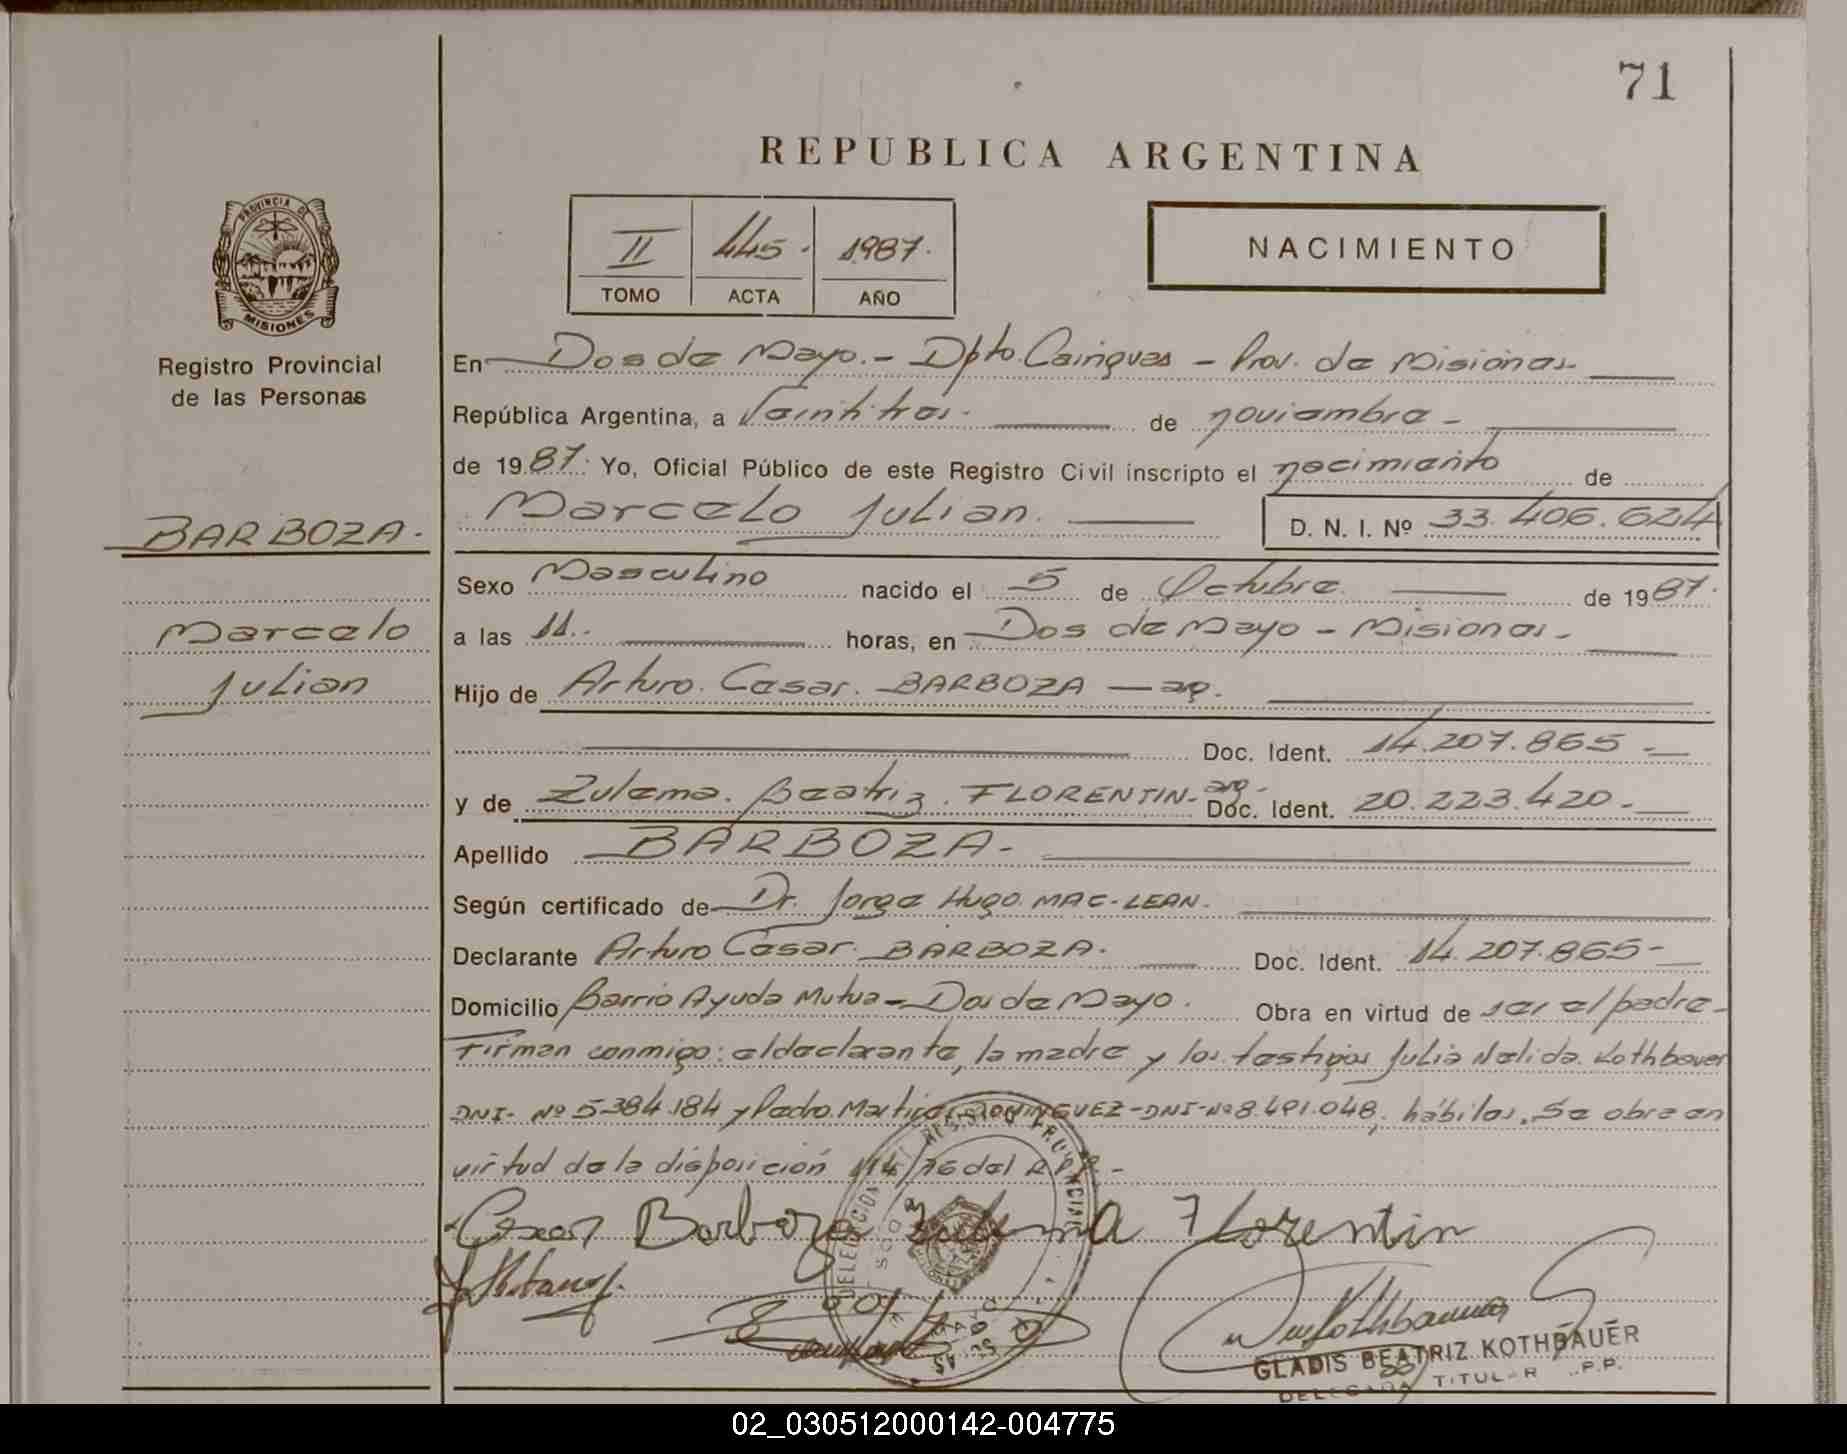 71
REPUBLICA ARGENTINA
PROVINCIA DE
MISIONES
Registro Provincial
de las Personas
II 445. 1987.
TOMO ACTA AÑO
NACIMIENTO
En Dos de Mayo.- Dpto. Cainguas - Prov. de Misiones
República Argentina, a Veintitres. de noviembre -
de 1987. Yo, Oficial Público de este Registro Civil inscripto el nacimiento de
BARBOZA.
Marcelo Julian. D. N. I. Nº 33.406.624
Sexo Masculino nacido el 5 de Octubre de 1987.
Marcelo
a las 11.- horas, en Dos de Mayo - Misiones -
Julian
Hijo de Arturo. Cesar. BARBOZA — arg.
Doc. Ident. 14.207.865 -
y de Zulema. Beatriz. FLORENTIN - arg - Doc. Ident. 20.223.420. -
Apellido BARBOZA -
Según certificado de Dr. Jorge Hugo MAC-LEAN.
Declarante Arturo Cesar. BARBOZA. Doc. Ident. 14.207.865 -
Domicilio Barrio Ayuda Mutua - Dos de Mayo. Obra en virtud de ser el padre -
Firman conmigo: el declarante, la madre y los testigos Julia Nelida Kothbauer
DNI- Nº 5.384.184 y Pedro DOMINGUEZ - DNI - Nº 8.491.048, hábiles. Se obra en
virtud de la disposición 114/76 del R.P.P. -
Cesar Barboza Zulema Florentin
GLADIS BEATRIZ KOTHBAUER
DELEGADA TITULAR P.P.
02_030512000142-004775